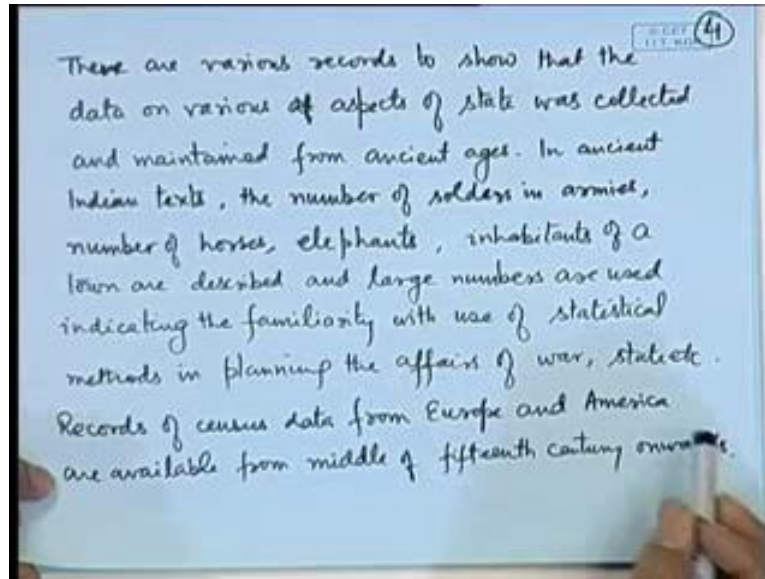 4
There are various records to show that the
data on various aspects of state was collected
and maintained from ancient ages. In ancient
Indian texts, the number of solders in armies,
number of horses, elephants, inhabitants of a
town are described and large numbers are used
indicating the familiarity with use of statistical
methods in planning the affairs of war, state etc.
Records of census data from Europe and America
are available from middle of fifteenth century onwards.